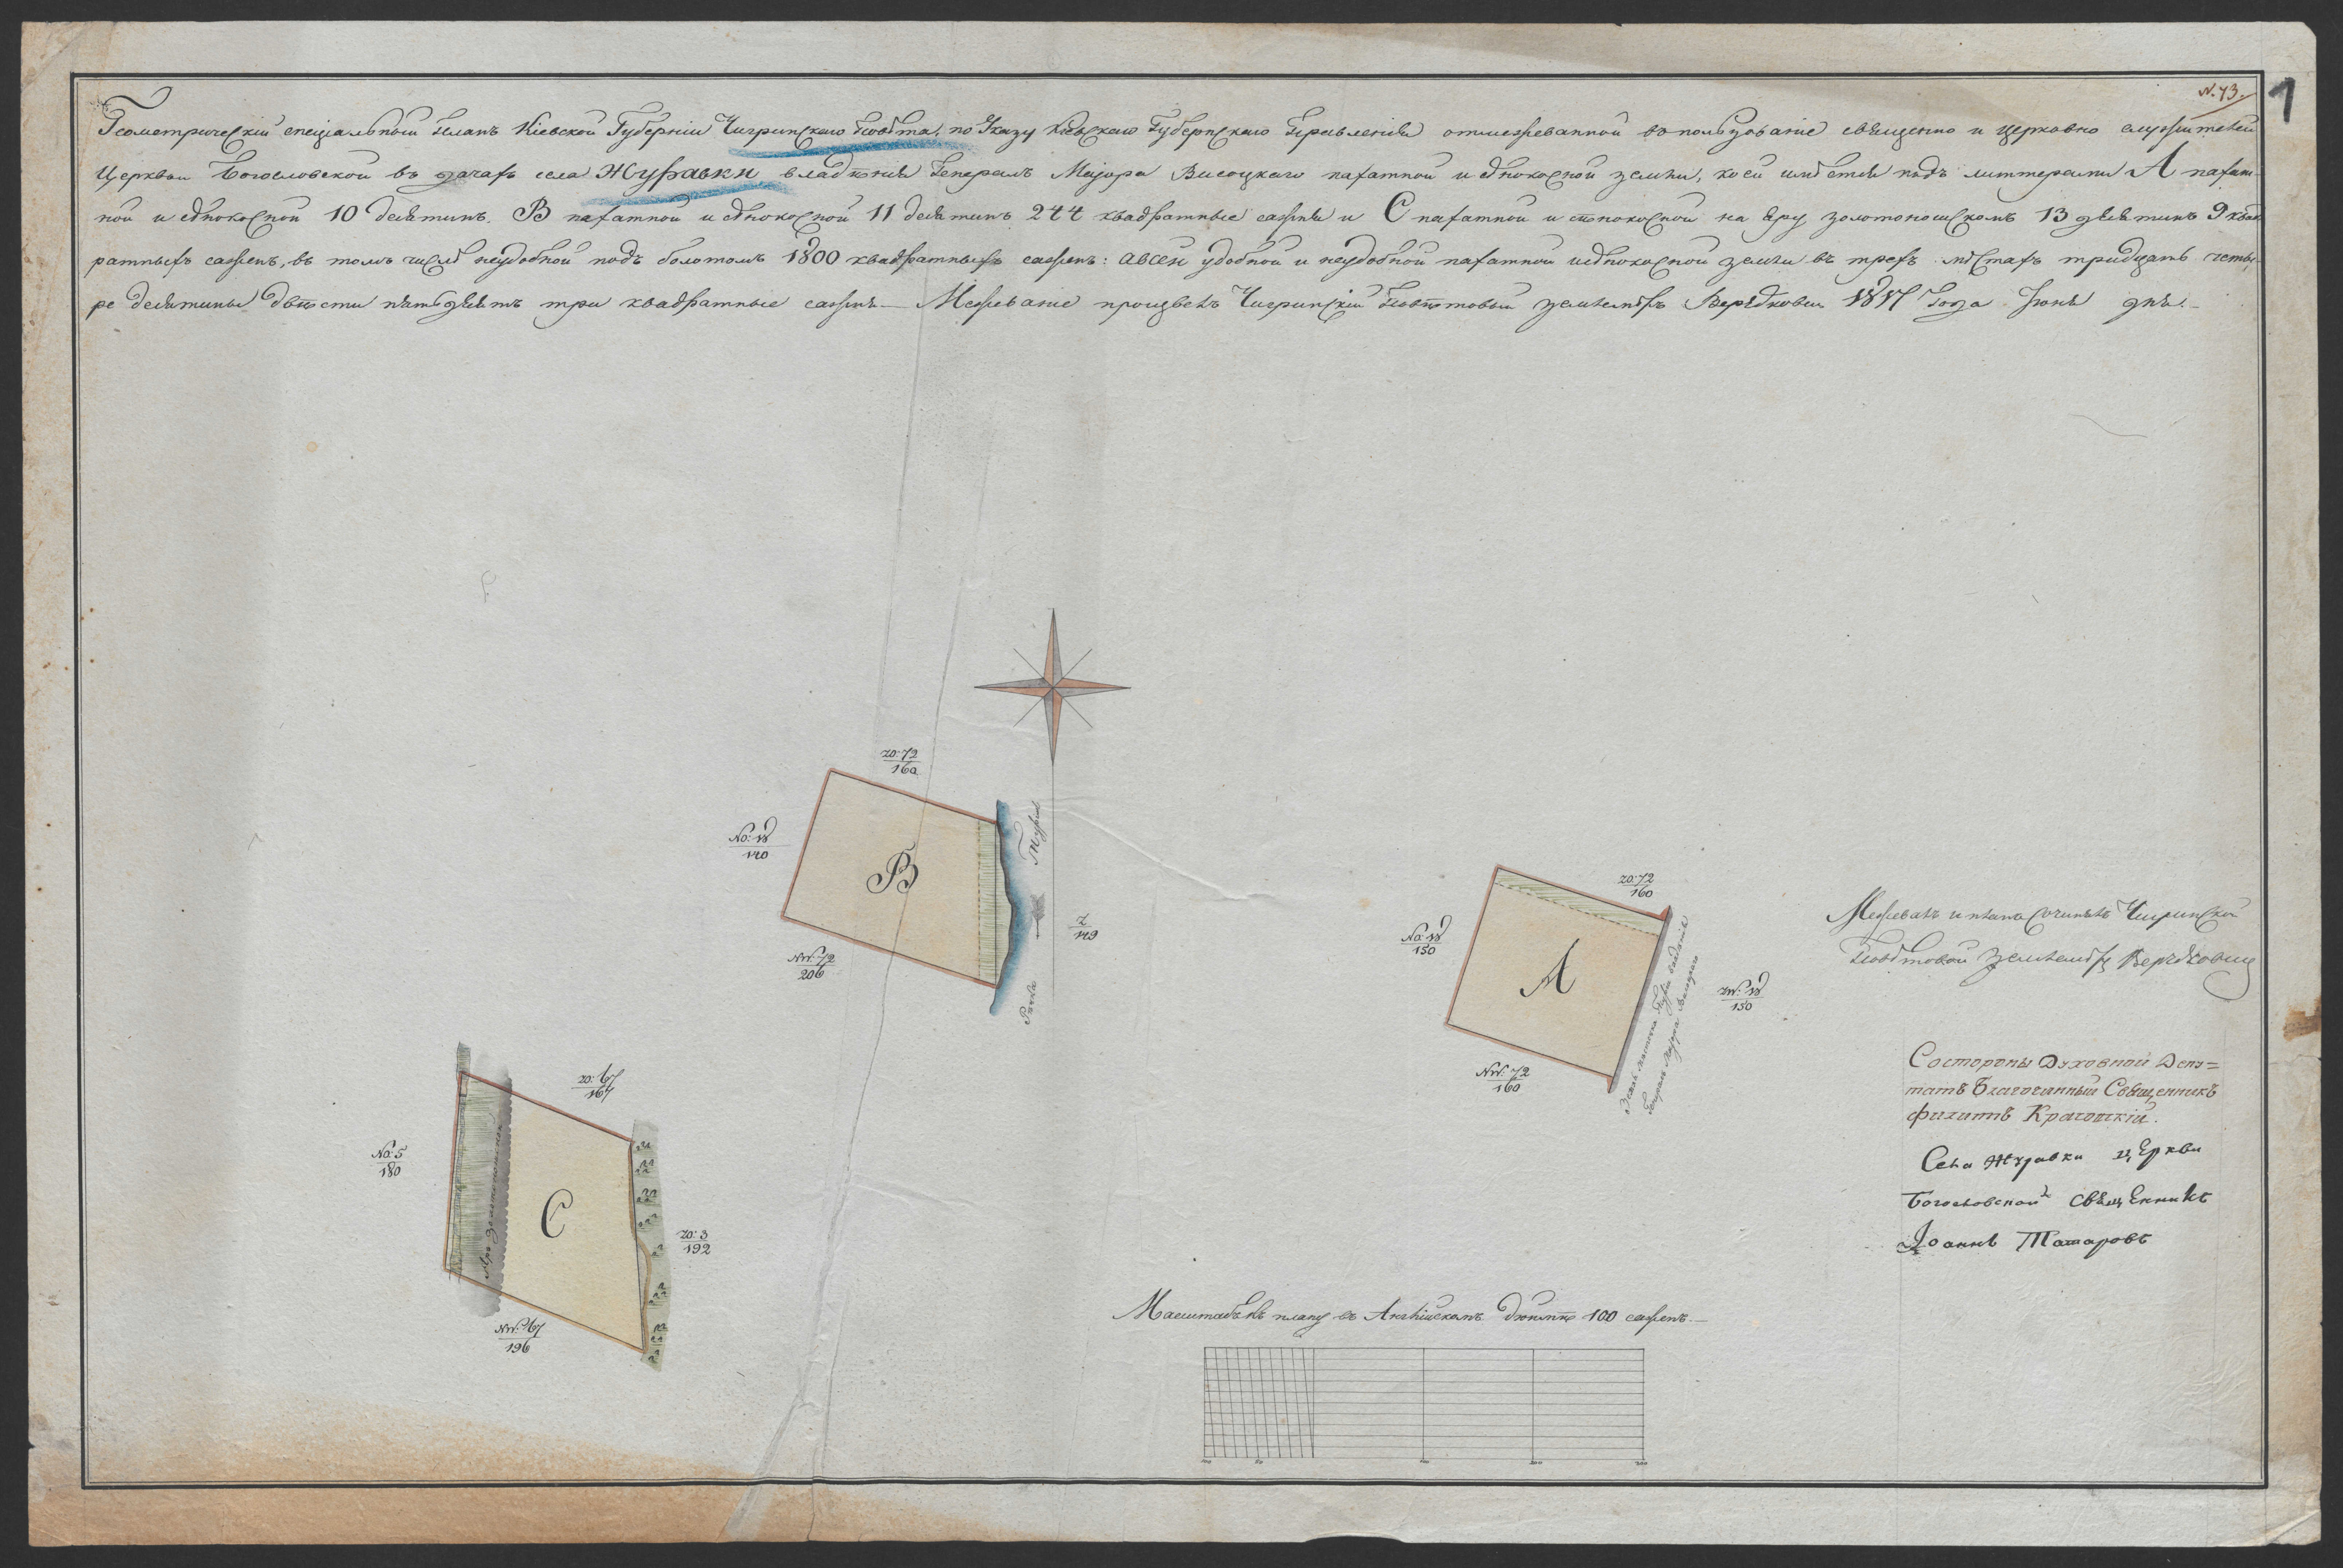 N. 73.
1
Геометрическій спеціальной планъ Кіевской Губерніи Чигринскаго Повѣта, по Указу Кіевскаго Губернскаго Правленія отмежеванной въ пользованіе священно и церковно служителей
Церквы Богословской въ дачахъ села Журавки владѣнія Генералъ Маіора Висоцкаго пахатной и сѣнокосной земли, коей имѣется подъ литтерами А пахат-
ной и сѣнокосной 10 десятинъ. В пахатной и сѣнокосной 11 десятинъ 244 квадратные сажня и С пахатной и сѣнокосной на яру золотоношскомъ 13 десятинъ 9 квад
ратныхъ саженъ, въ томъ числѣ неудобной подъ болотомъ 1800 квадратныхъ саженъ: авсей удобной и неудобной пахатной исѣнокосной земли въ трехъ мѣстахъ тридцать четы-
ре десятины двѣсти пятьдесятъ три квадратные сажня — Межеваніе произвелъ Чигринскій Повѣтовый землемѣръ 1817 Года Іюня дня. —
zo: 72
160
No: 18
140
В
NW: 72
206
Рѣчка
Z
149
zo: 72
160
No: 18
150
А
zW: 18
150
NW: 72
160
Земля мѣстечка владѣнія
Генералъ Маіора Висоцкаго
zo: 67
167
No: 5
180
Яръ Золотоношской
С
zo: 3
192
NW: 67
196
Межевалъ и планъ сочинялъ Чигринской
Повѣтовой землемѣръ
Состороны Духовной Депу=
татъ Благочинный Священникъ
Филипъ
Села Журавки церкви
Богословской священникъ
Іоаннъ Татаровъ
Масштабъ къ плану въ Англійскомъ дюймѣ 100 саженъ. —
100 50 100 200 300